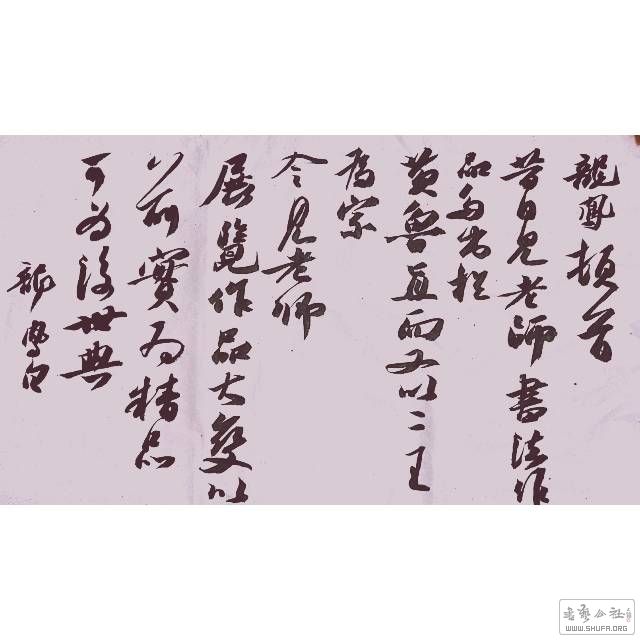 龍鳳頓首
昔日見老師書法作
品多出於
黄魯直而又以二王
為宗
今見老師
展覽作品大變以
前實為精品
可為後世典
龍鳳白
書藝公社
WWW.SHUFA.ORG